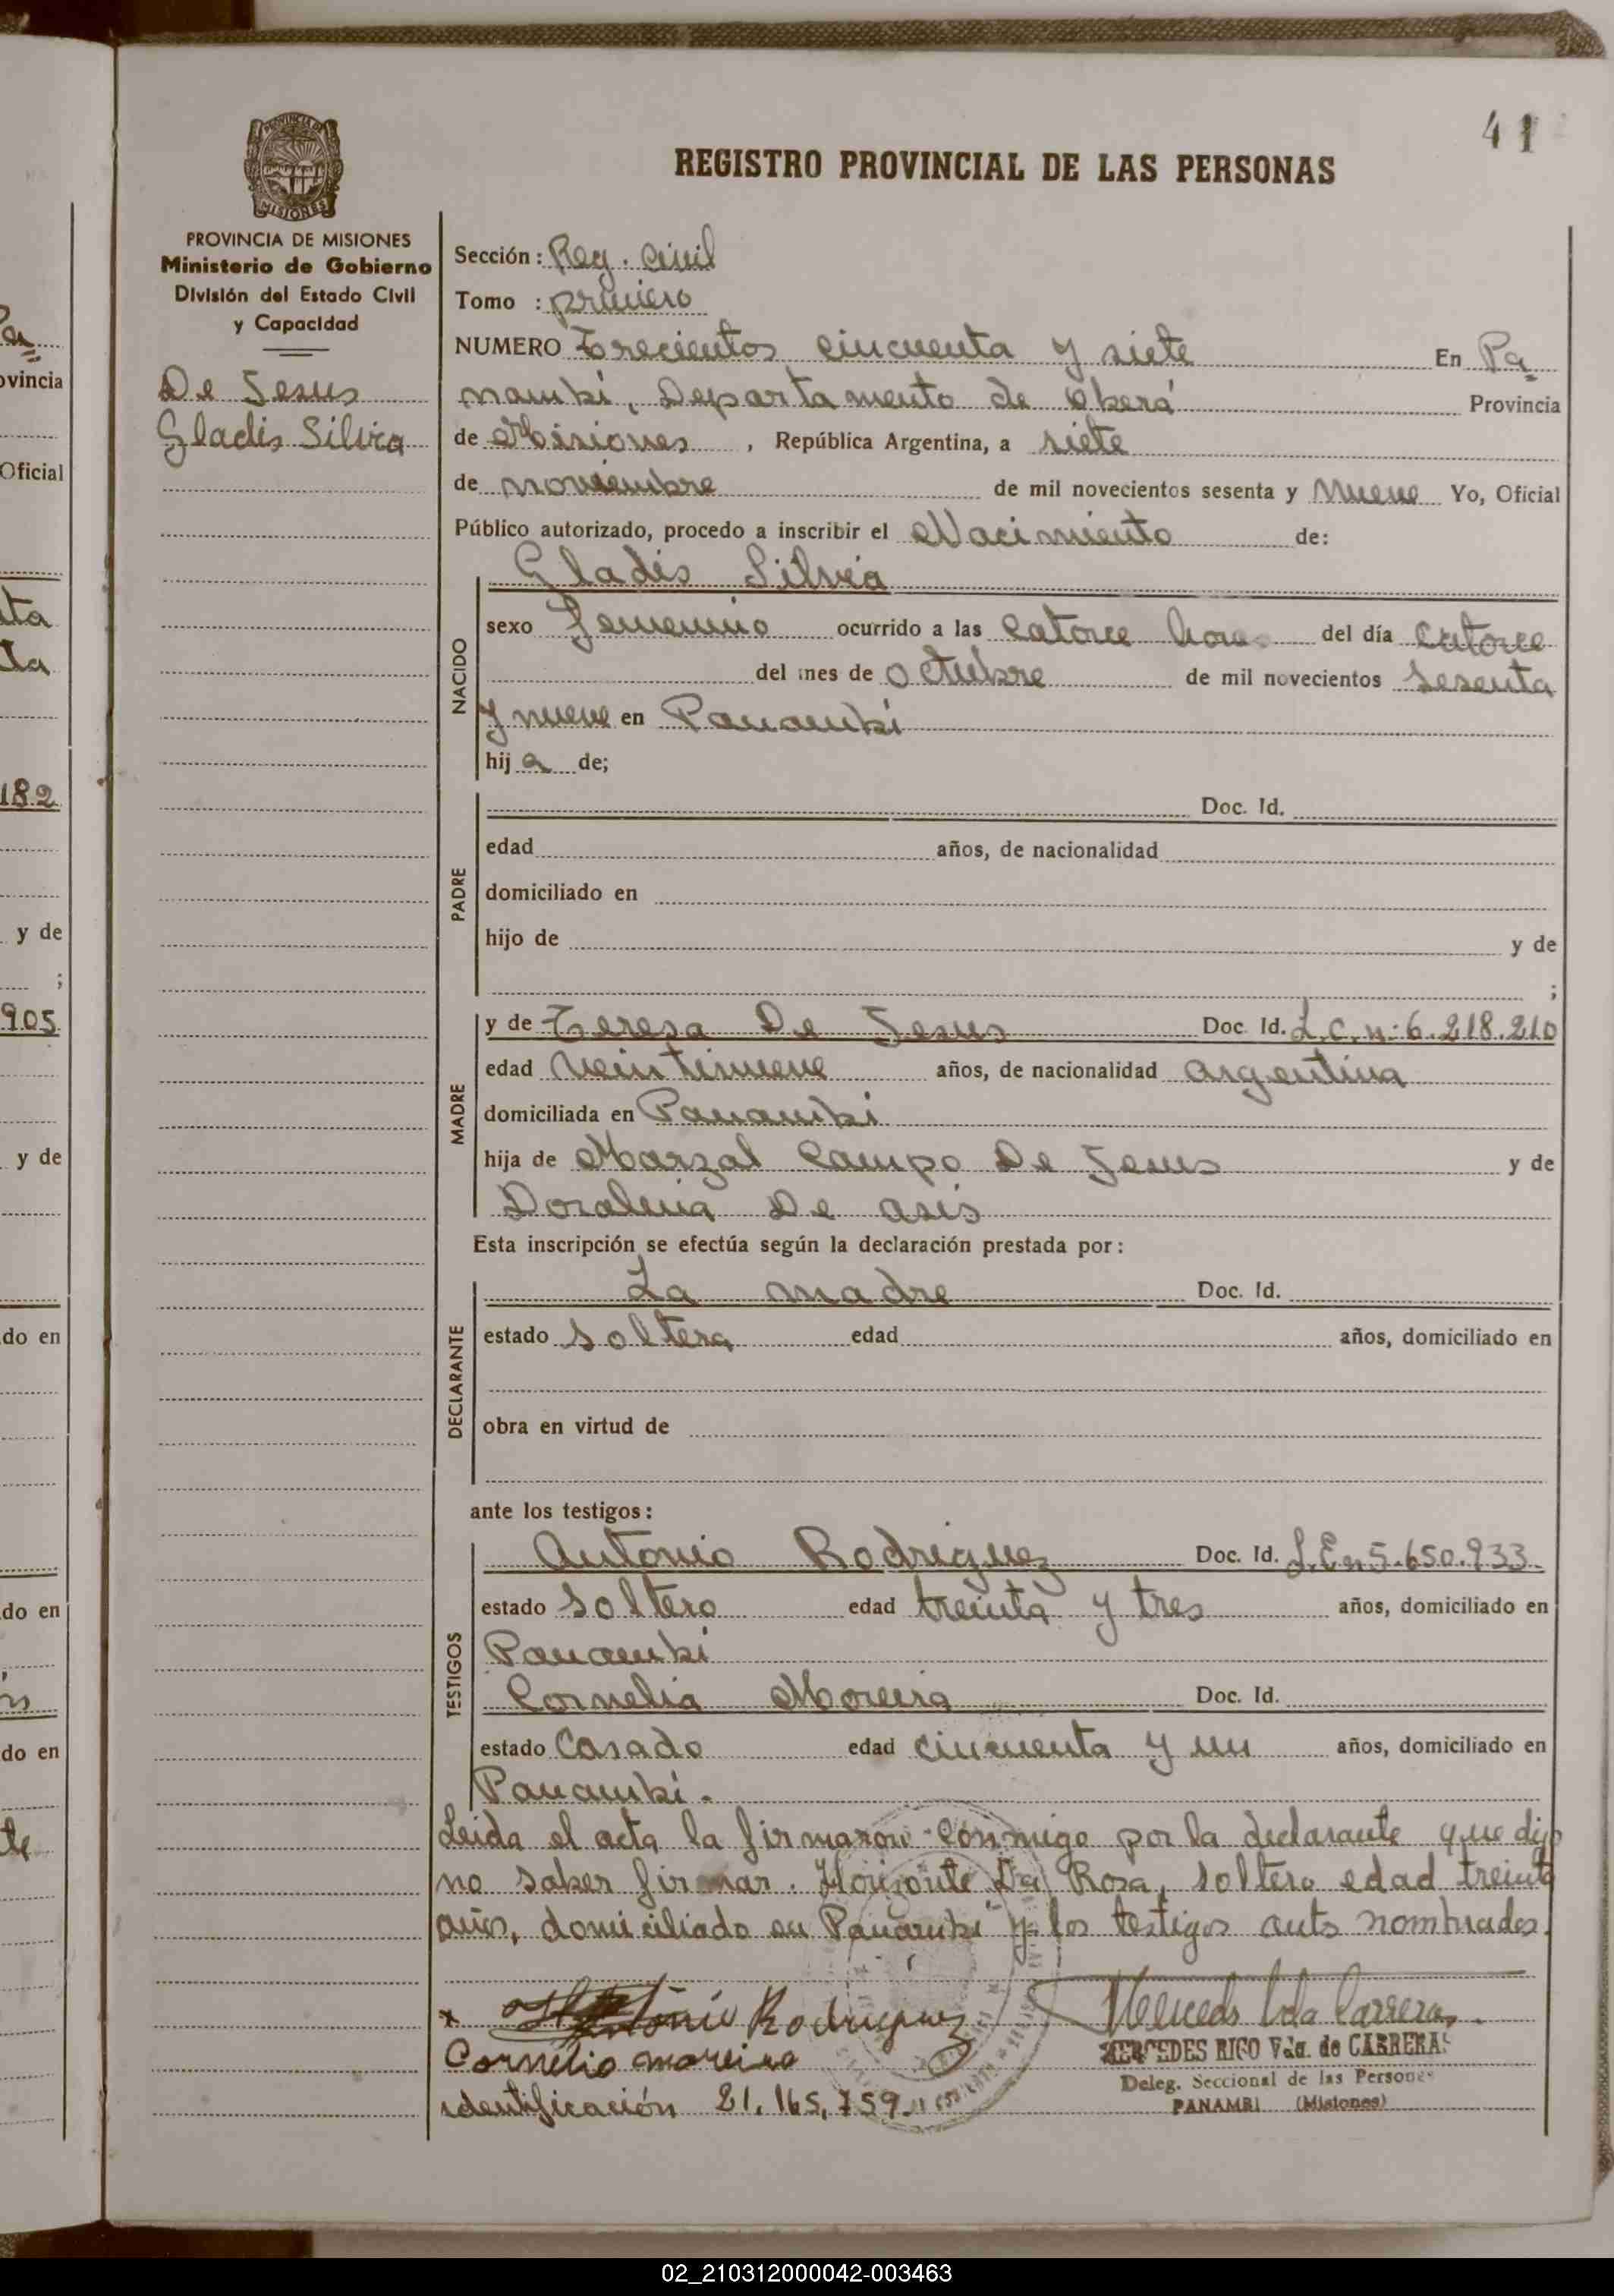 41
REGISTRO PROVINCIAL DE LAS PERSONAS
PROVINCIA DE MISIONES
Ministerio de Gobierno
División del Estado Civil
y Capacidad
De Jesus
Gladis Silvia
Sección: Reg. Civil
Tomo : primero
NUMERO Trecientos cincuenta y siete En Pa
nambí, Departamento de Oberá Provincia
de Misiones, República Argentina, a siete
de noviembre de mil novecientos sesenta y Nueve Yo, Oficial
Público autorizado, procedo a inscribir el Nacimiento de:
NACIDO
Gladis Silvia
sexo femenino ocurrido a las catorce horas del día catorce
del mes de octubre de mil novecientos sesenta
y nueve en Panambí
hija de;
PADRE
Doc. Id.
edad años, de nacionalidad
domiciliado en
hijo de y de
;
MADRE
y de Teresa De Jesus Doc Id. L.C.n: 6.218.210
edad veintinueve años, de nacionalidad argentina
domiciliada en Panambí
hija de Marzal Campo De Jesus y de
De asis
Esta inscripción se efectúa según la declaración prestada por:
DECLARANTE
La madre Doc. Id.
estado soltera edad años, domiciliado en
obra en virtud de
ante los testigos:
TESTIGOS
Antonio Rodriguez Doc. Id. L.E.n 5.650.933
estado soltero edad treinta y tres años, domiciliado en
Panambí
Cornelia Moreira Doc. Id.
estado Casado edad cincuenta y un años, domiciliado en
Panambí.
Leida el acta la firmaron conmigo por la declarante que dijo
no saber firmar. Da Rosa, soltero edad treinta
años, domiciliado en Panambí y los testigos ants nombrados.
x Antonio Rodriguez
Cornélio moreira
identificación 21.165.759
Mercedes Vda Carreras
MERCEDES RICO Vda. de CARRERAS
Deleg. Seccional de las Personas
PANAMBI (Misiones)
vincia
Oficial
182
y de
;
905
y de
do en
do en
do en
02_210312000042-003463